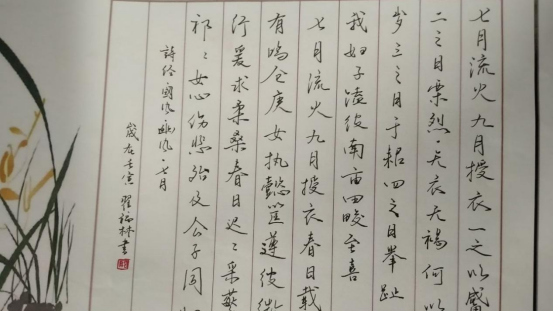 七月流火九月授衣一之以觱
二之日栗烈无衣无褐何以
岁三之日于耜四之日举趾
我妇子馌彼南亩田畯至喜
七月流火九月授衣春日载
有鸣仓庚女执懿筐遵彼微
行爰求柔桑春日迟〻采蘩
祁〻女心伤悲殆及公子同
詩经·國风·豳风·七月
歲在壬寅 翟福林書